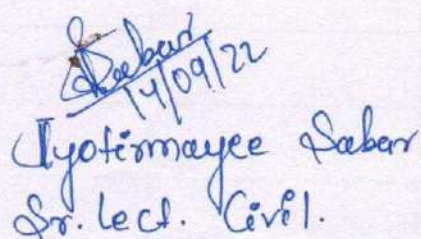 14/09/22
Jyotirmayee Sabar
Sr. Lect. Civil.